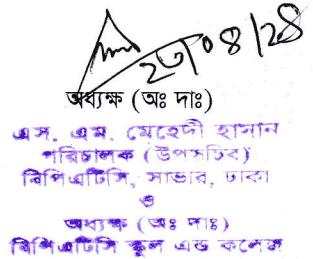 ২৩/০৪/২৪
অধ্যক্ষ (অঃ দাঃ)
এস. এম. মেহেদী হাসান
পরিচালক (উপসচিব)
বিপিএটিসি, সাভার, ঢাকা
ও
অধ্যক্ষ (অঃ দাঃ)
বিপিএটিসি স্কুল এন্ড কলেজ